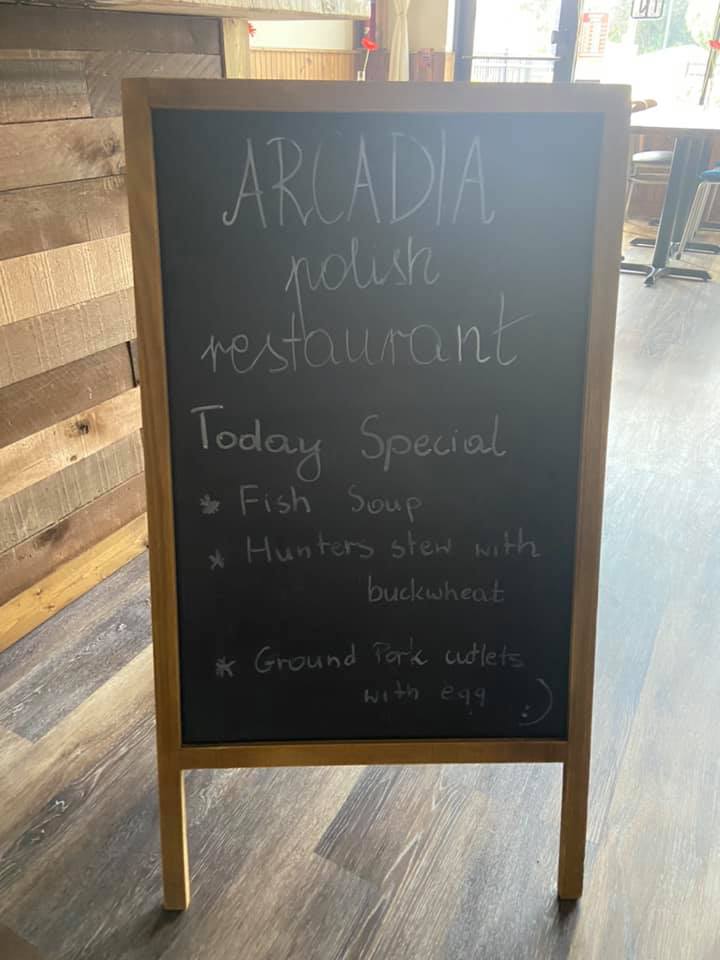 ARCADIA
polish
restaurant
Today Special
* Fish Soup
* Hunters stew with
buckwheat
* Ground Pork cutlets
with egg :)